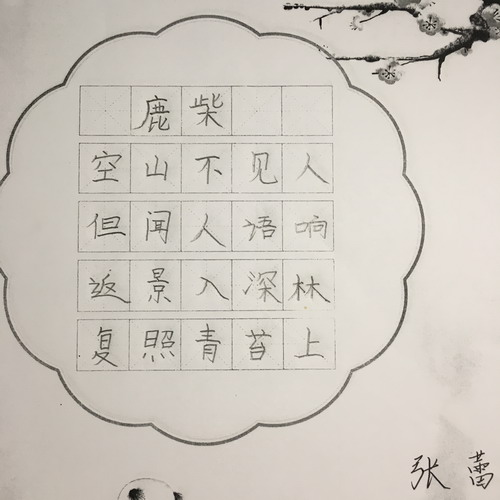 鹿柴
空山不见人
但闻人语响
返景入深林
复照青苔上
张蕾